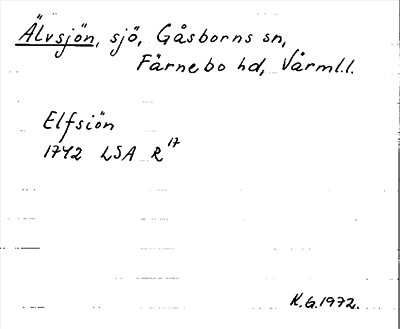 Älvsjön, sjö, Gåsborns sn,
Färnebo hd, Värml.l.
Elfsiön
1742 LSA R 17
K.G.1972.